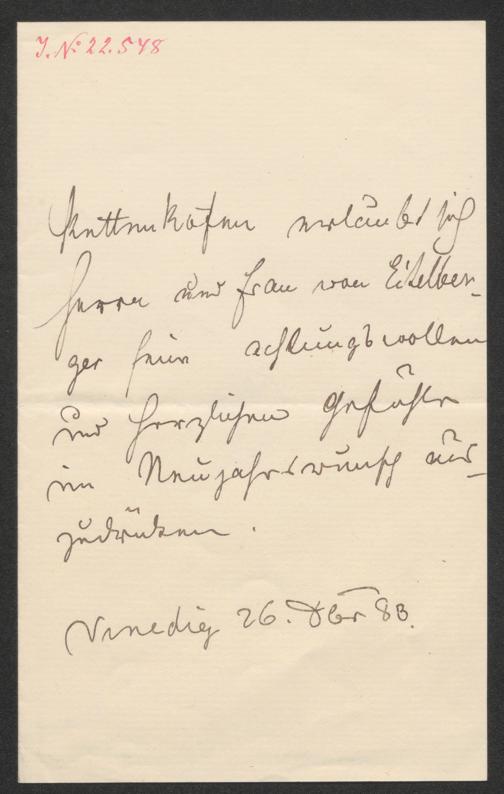 J. No 22.548
Pettenkofen erlaubt sich
Herrn und Frau von Eitelber-
ger seine achtungsvollen
und herzlichen Gefühle
im Neujahrswunsch aus-
zudrüken.
Venedig 26. Dbr 83.